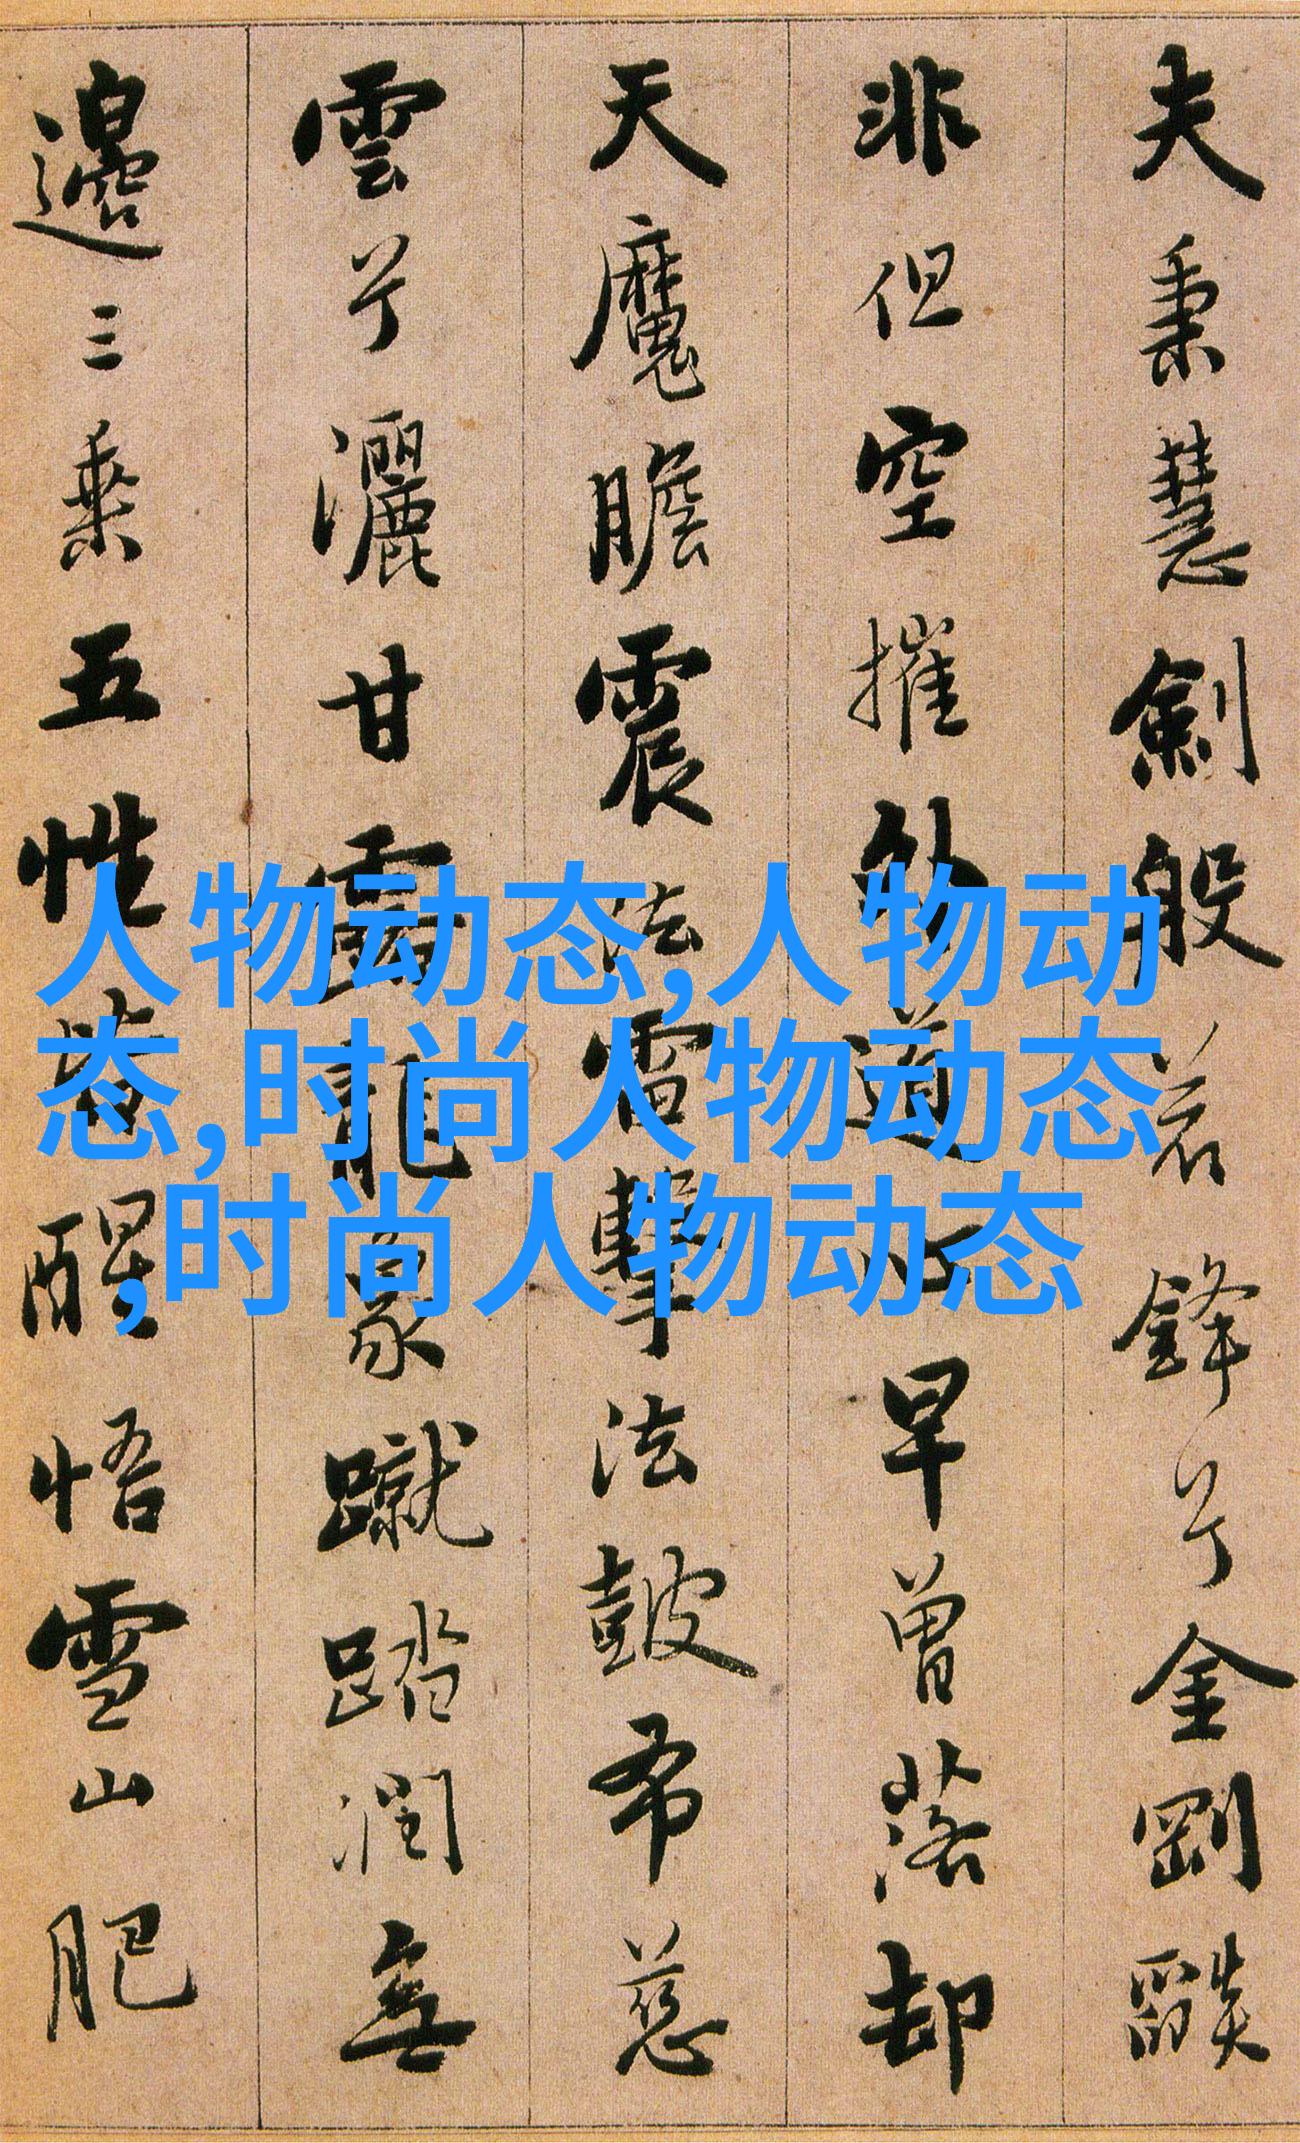 夫秉慧劍般若鋒兮金剛燄
非但空摧外道心早曾落却
天魔膽震法雷擊法皷布慈
雲兮灑甘露龍象蹴踏潤無
邊三乘五性皆醒悟雪山肥
人物动态,人物动
态,时尚人物动态
,时尚人物动态